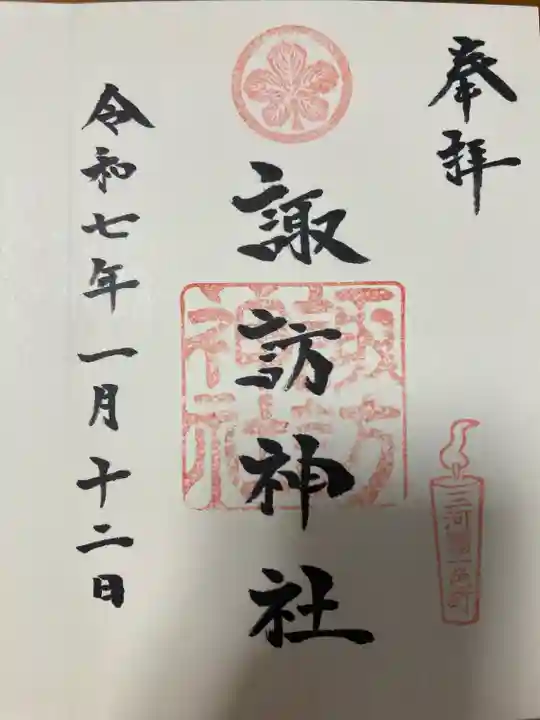 奉拝
諏訪神社
諏訪神社
三河國一色町
令和七年一月十二日